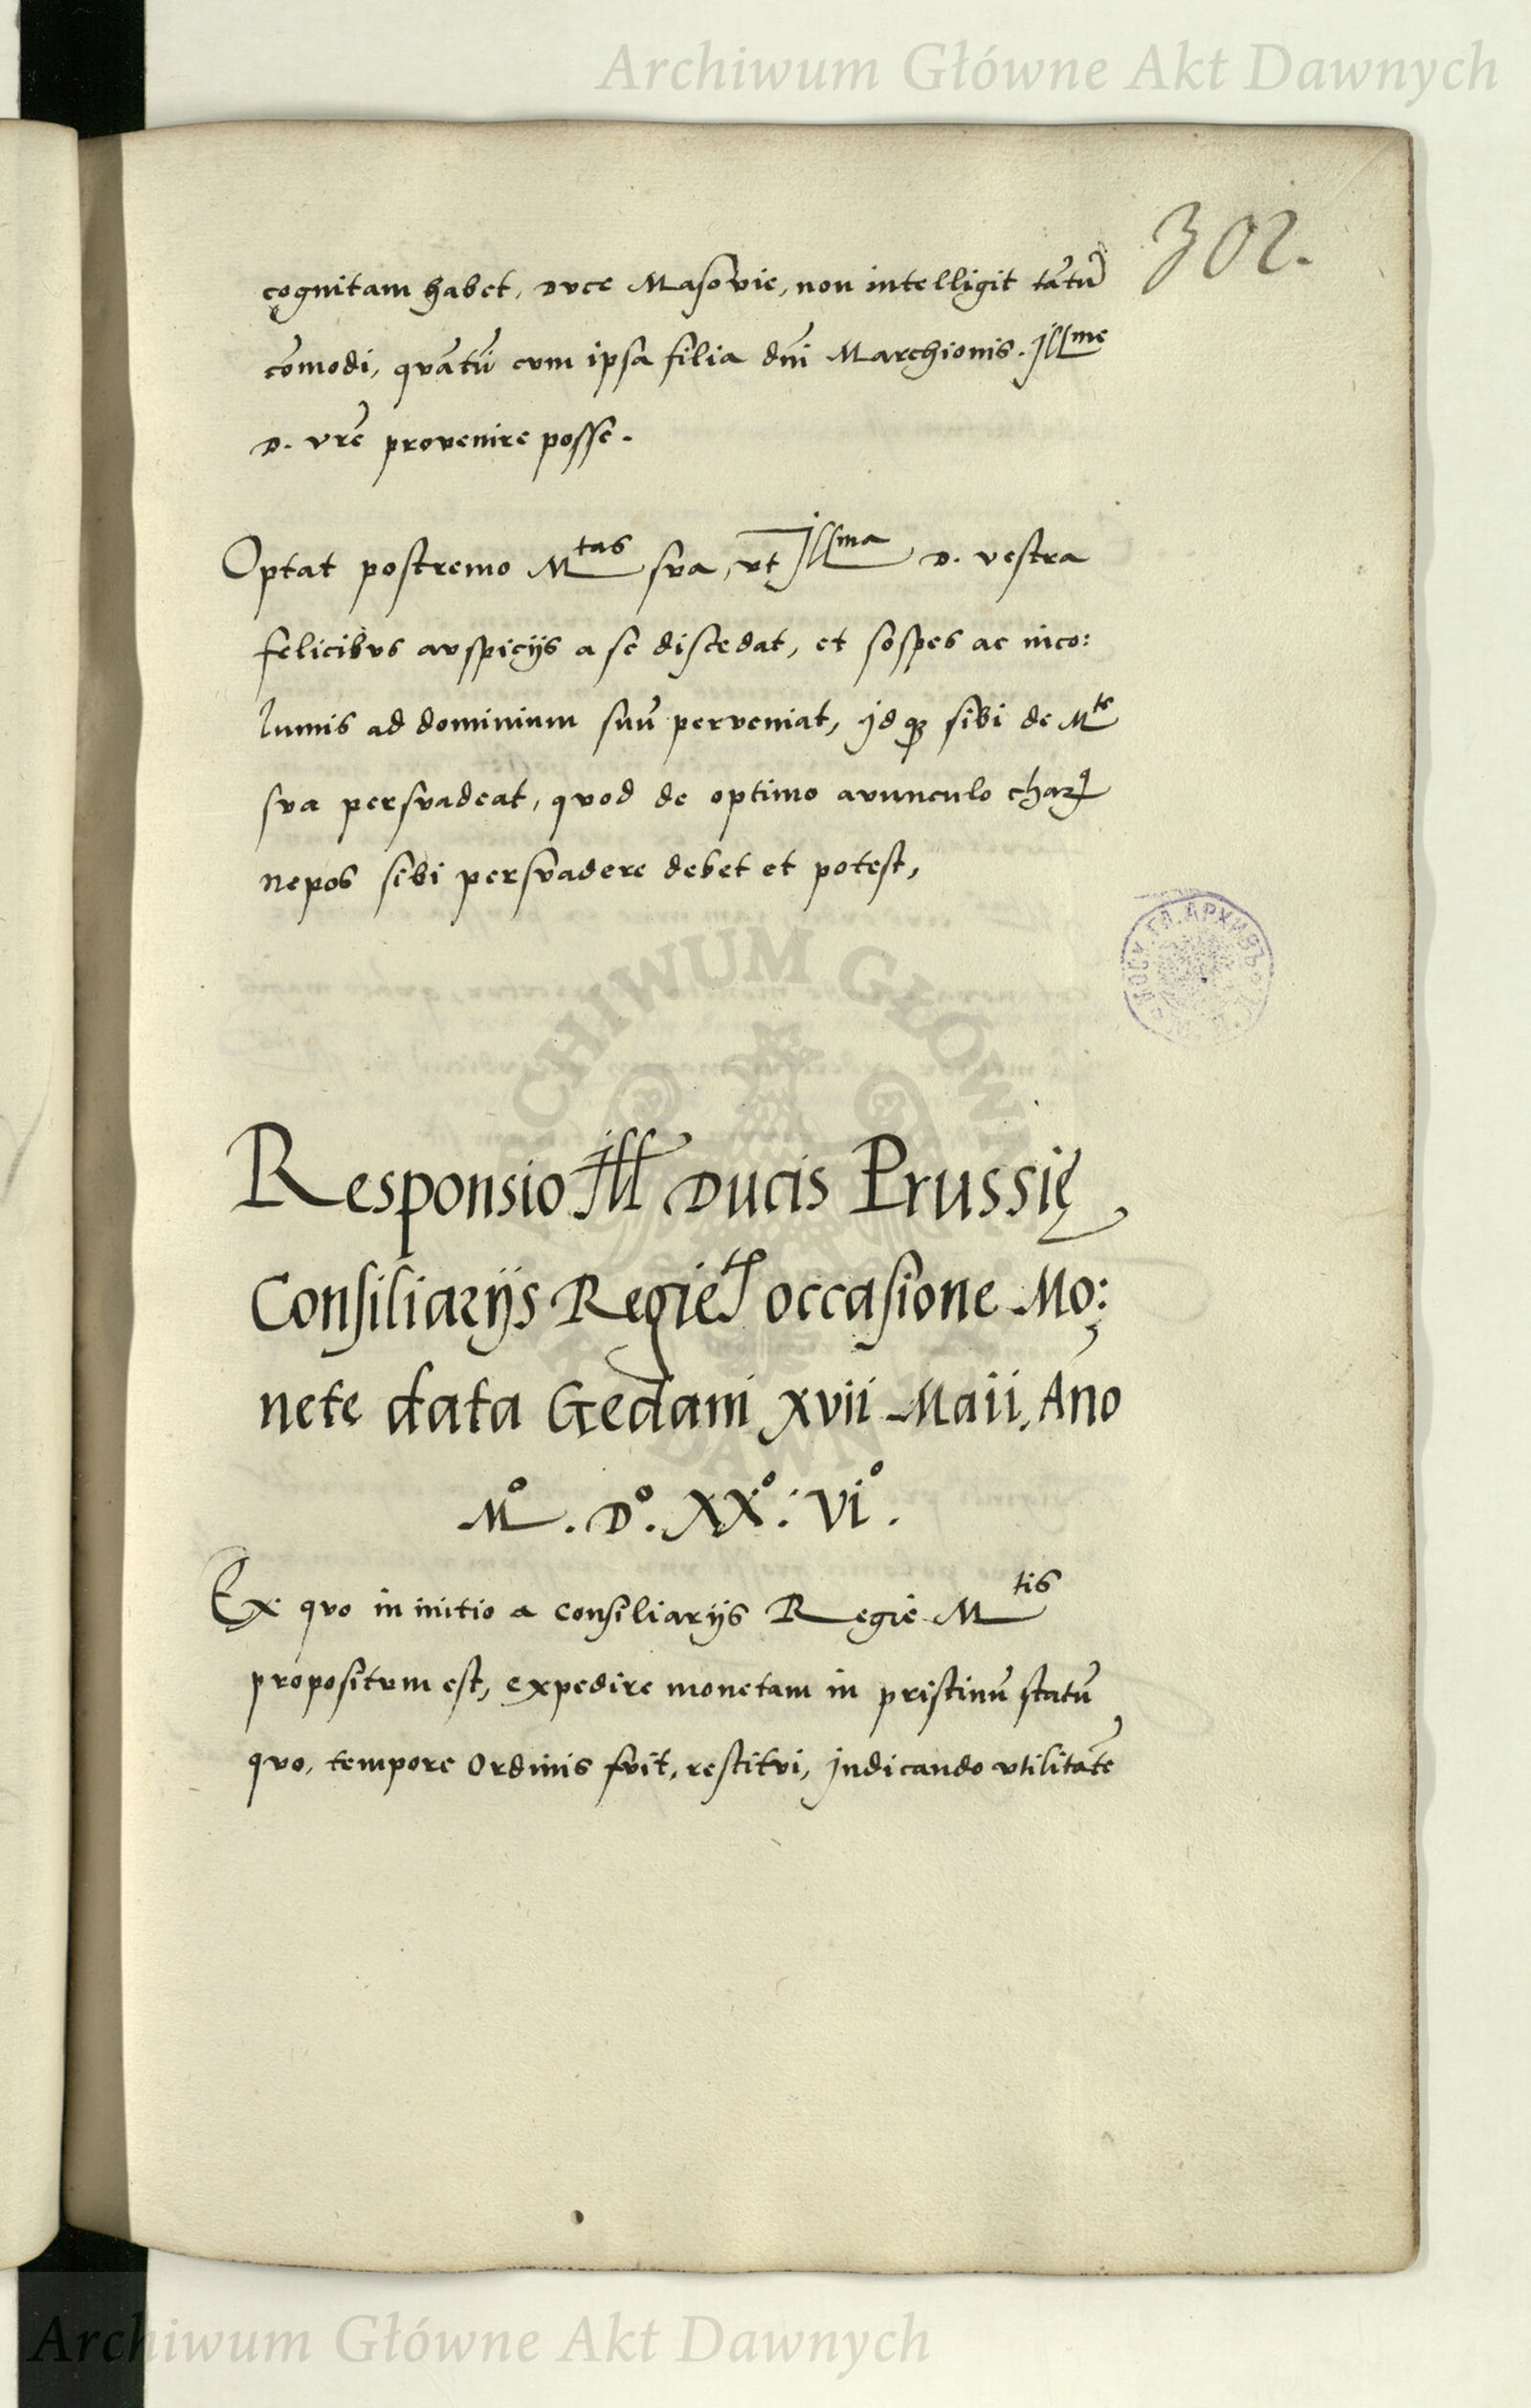 Archiwum Główne Akt Dawnych
302.
cognitam habet, duce Masovie, non intelligit tātū
cōmodi, qvātū cvm ipsa filia dn̄i Marchionis. Jllme
D. vrē provenire posse.
Optat postremo Mtas sva, vt Jllma D. vestra
felicibvs avspicijs a se discedat, et sospes ac inco:
lumis ad dominium suū perveniat, jdqꝫ sibi de Mte
sva persvadeat, qvod de optimo avunculo char9
nepos sibi persvadere debet et potest,
ARCHIWUM GŁÓWNE AKT DAWNYCH
Responsio Jll Ducis Prussię
Consiliarijs Regie occasione Mo:
nete data Gedani xvii Maii. Āno
Mo. Do. XXo. VIo.
Ex qvo in initio a consiliarijs Regie Mtis
propositvm est, expedire monetam in pristinū statū
qvo, tempore Ordinis fvit, restitvi, jndicando vtilitatē
Archiwum Główne Akt Dawnych